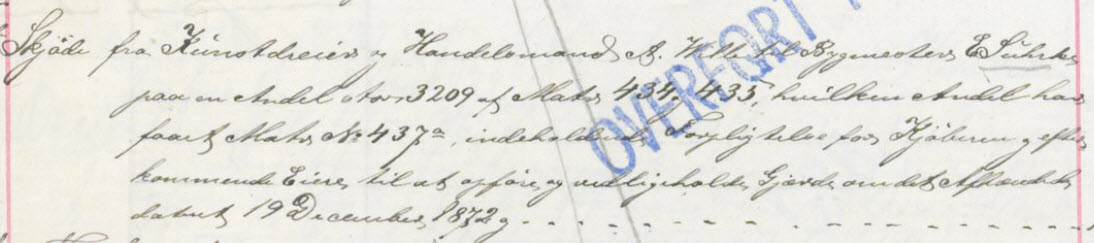 Skjöde fra Kunstdreier og Handelsmand A. Witte til Bygmester E Suhrke
paa en Andel stor 3209 af Matr 434, 435, hvilken Andel har
faaet Matr No 437a, indeholdende Forpligtelse for Kjöberen og efter
kommende Eiere til at opföre og vedligeholde Gjærde om det Afhændede
datert 19 December 1872 og
OVERFØRT